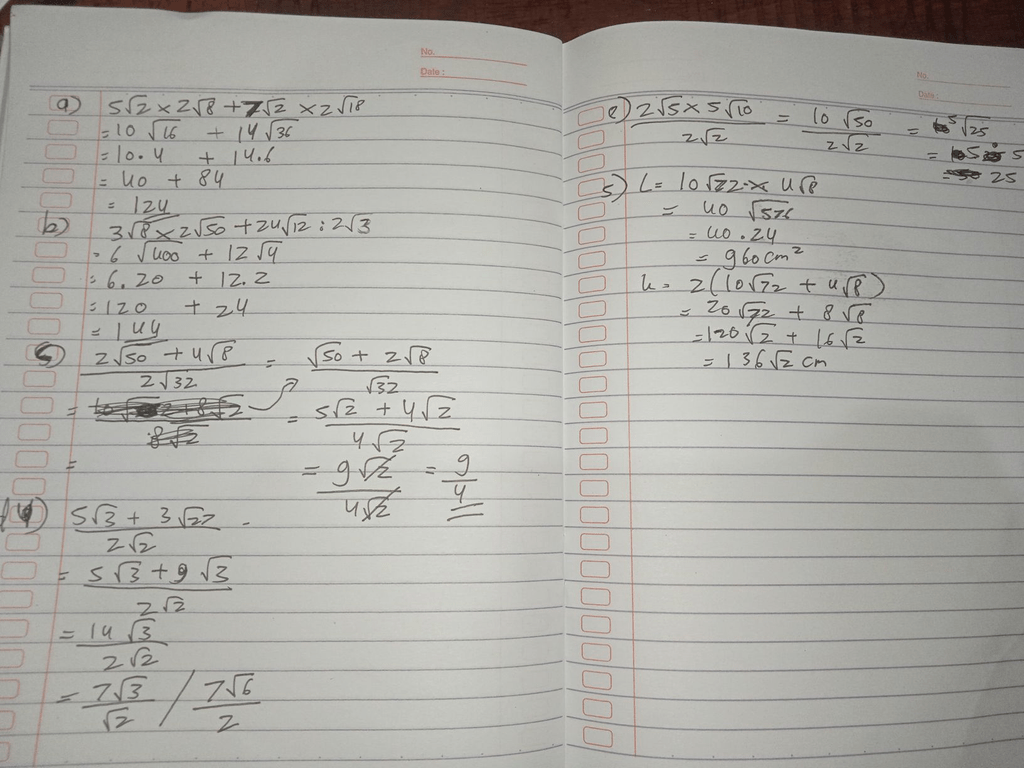 No.
Date :
a) 5√2 × 2√8 + 7√2 × 2√18
= 10 √16 + 14√36
= 10.4 + 14.6
= 40 + 84
= 124
b) 3√8 × 2√50 + 24√12 : 2√3
= 6 √400 + 12√4
= 6.20 + 12.2
= 120 + 24
= 144
c) (2√50 + 4√8)/(2√32) = (√50 + 2√8)/√32
= = (5√2 + 4√2)/(4√2)
= = 9√2/4√2 = 9/4
(5√3 + 3√27)/(2√2)
= (5√3 + 9√3)/(2√2)
= 14√3/2√2
= 7√3/√2 / 7√6/2
No.
Date :
e) (2√5 × 5√10)/(2√2) = 10√50/2√2 = 5√25
= 5 . 5
= 25
5) L = 10√72 × 4√8
= 40 √576
= 40.24
= 960 cm²
k = 2(10√72 + 4√8)
= 20√72 + 8√8
= 120√2 + 16√2
= 136√2 cm